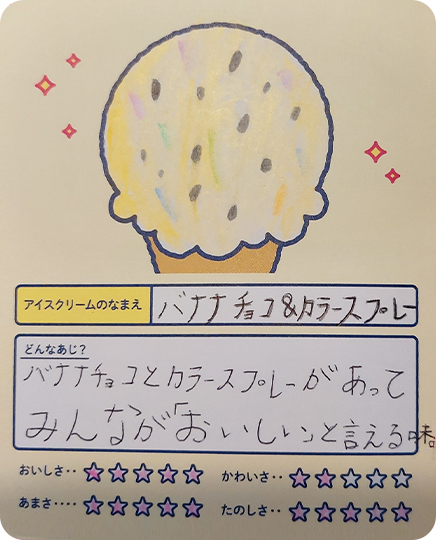 アイスクリームのなまえ
バナナチョコ&カラースプレー
どんなあじ?
バナナチョコとカラースプレーがあって
みんなが「おいしい」と言える味。
おいしさ‥ ★★★★★
かわいさ‥ ★★☆☆☆
あまさ‥‥ ★★★★★
たのしさ‥ ★★★★★